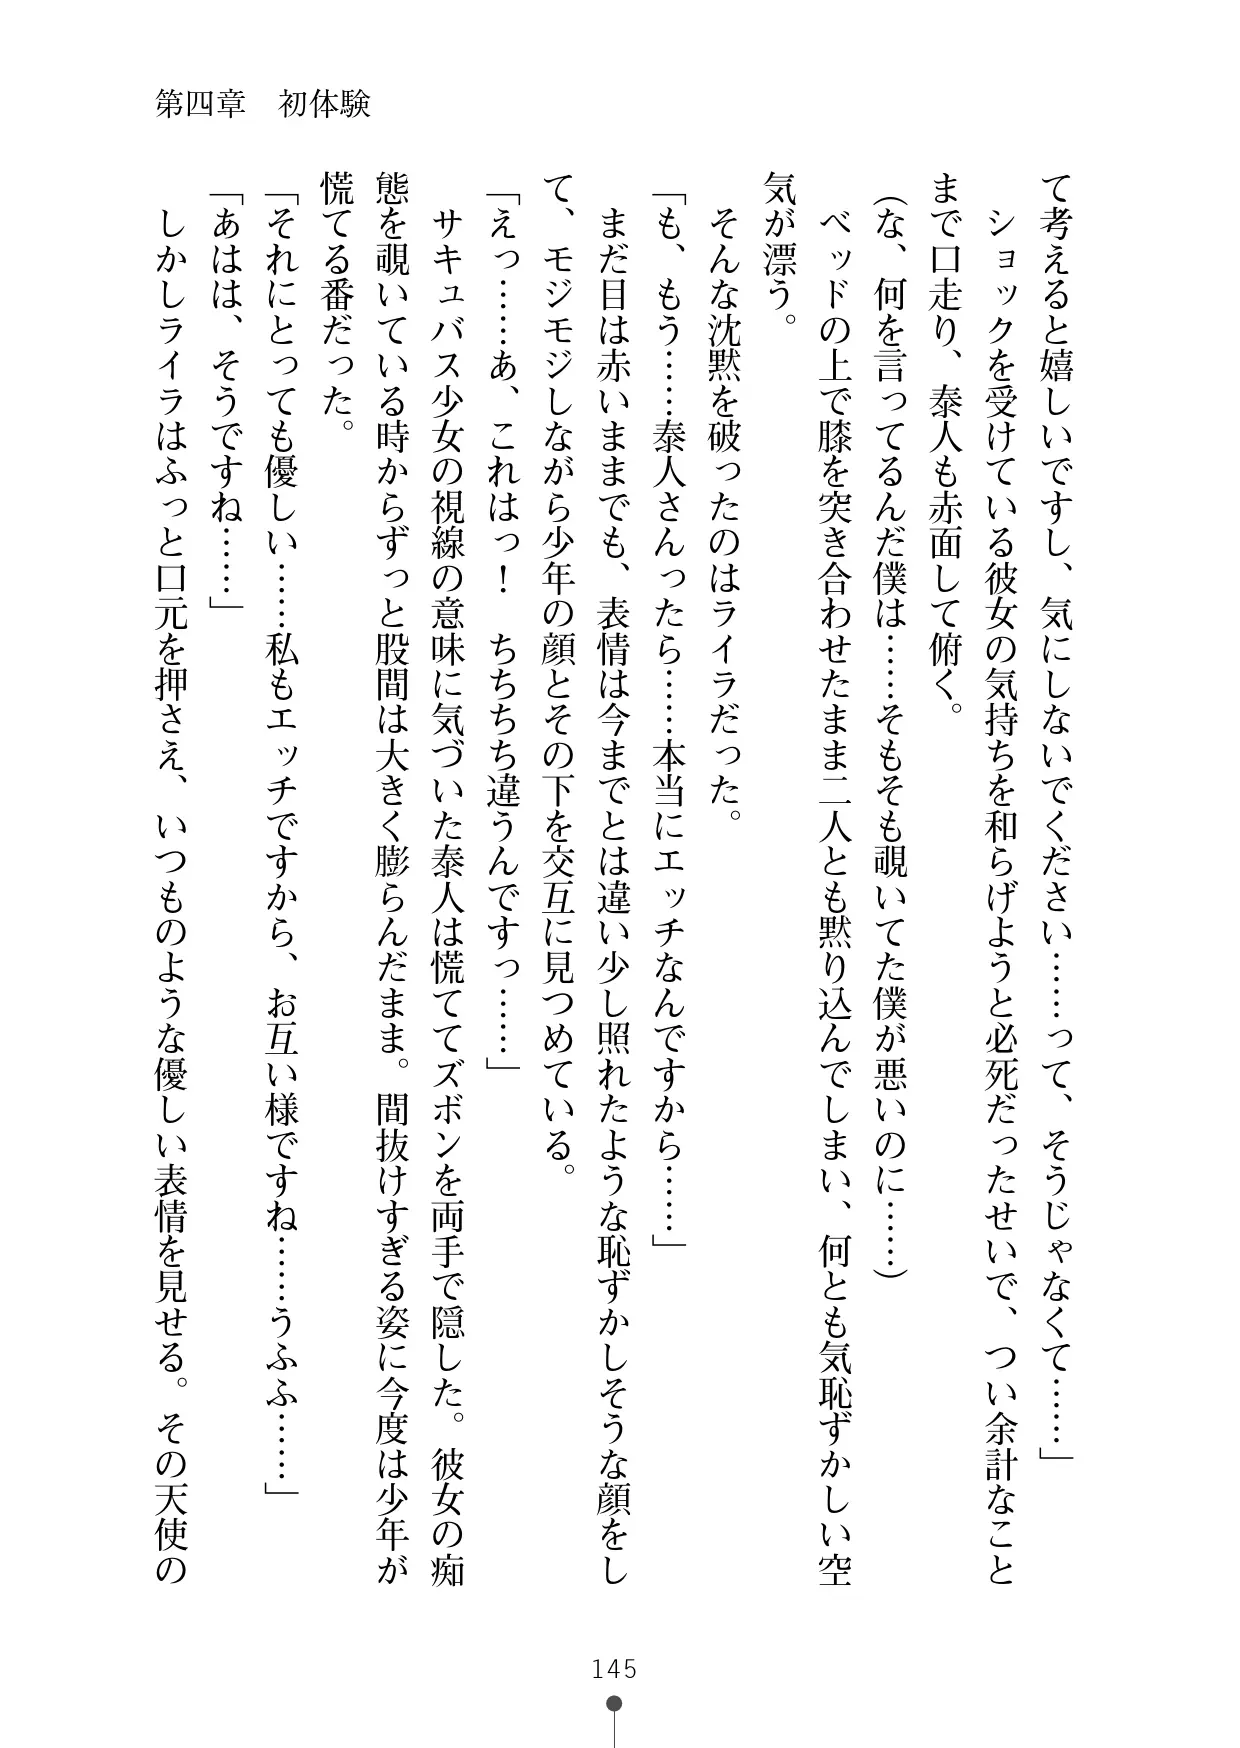 第四章　初体験
て考えると嬉しいですし、気にしないでください……って、そうじゃなくて……」
　ショックを受けている彼女の気持ちを和らげようと必死だったせいで、つい余計なこと
まで口走り、泰人も赤面して俯く。
（な、何を言ってるんだ僕は……そもそも覗いてた僕が悪いのに……）
　ベッドの上で膝を突き合わせたまま二人とも黙り込んでしまい、何とも気恥ずかしい空
気が漂う。
　そんな沈黙を破ったのはライラだった。
「も、もう……泰人さんったら……本当にエッチなんですから……」
　まだ目は赤いままでも、表情は今までとは違い少し照れたような恥ずかしそうな顔をし
て、モジモジしながら少年の顔とその下を交互に見つめている。
「えっ……あ、これはっ！　ちちちち違うんですっ……」
　サキュバス少女の視線の意味に気づいた泰人は慌ててズボンを両手で隠した。彼女の痴
態を覗いている時からずっと股間は大きく膨らんだまま。間抜けすぎる姿に今度は少年が
慌てる番だった。
「それにとっても優しい……私もエッチですから、お互い様ですね……うふふ……」
「あはは、そうですね……」
　しかしライラはふっと口元を押さえ、いつものような優しい表情を見せる。その天使の
145